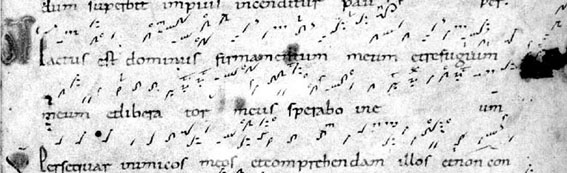 dum superbit impius incenditur pau per
Factus est dominus firmamentum meum et refugium
meum et libera tor meus sperabo in e um
Persequar inimicos meos et comprehendam illos et non con